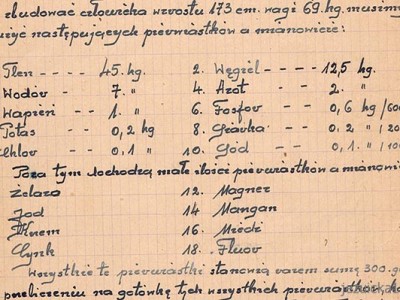 zbudować człowieka wzrostu 173 cm. wagi 69. kg. musimy
użyć następujących pierwiastków a mianowicie:
Tlen - - - - 45. kg. 2. Węgiel - - - - 12,5 kg.
Wodór - 7. " 4. Azot - - 2. "
Wapień - 1. " 6. Fosfor - - 0,6 kg /600
Potas - - 0,2 kg 8. Siarka - - 0.2 " /20
Chlor - - 0,1 " 10. Sód - - 0,1. " /10
Poza tym dochodzą małe ilości pierwiastków a mianow
Żelazo 12. Magnez
Jod 14 Mangan
Krzem 16. Miedź
Cynk 18. Fluor
Wszystkie te pierwiastki stanowią razem sumę 300.g
przeliczeniu na gotówkę tych wszystkich pierwiastków